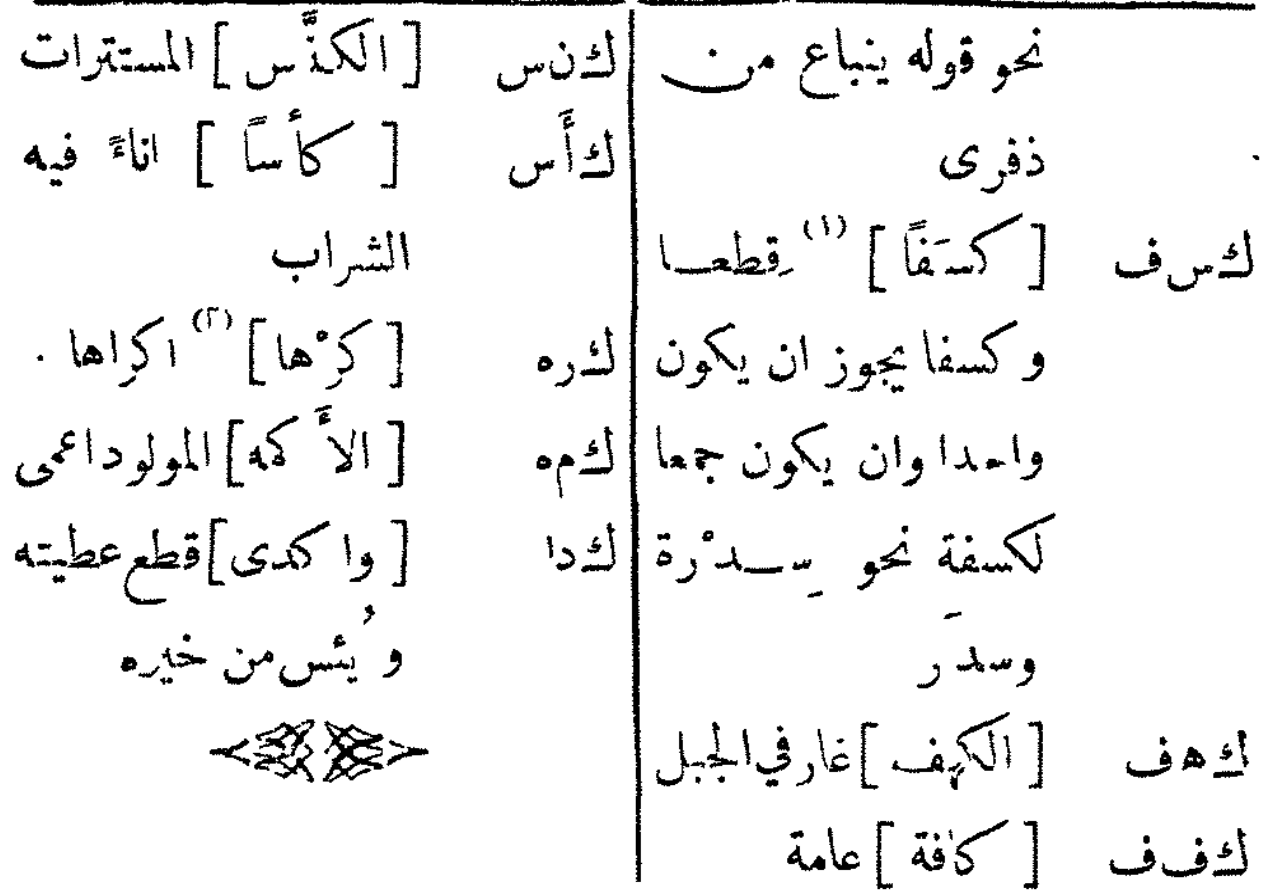 نحو قوله ينباع من
ذفرى
ك س ف [ كسَفاً ] (١) قِطعا
و كسفا يجوز ان يكون
واحدا وان يكون جمعا
لكسفة نحو سِدْرة
وسدَر
ك ه ف [ الكهف ] غار في الجبل
ك ف ف [ كافة ] عامة
ك ن س [ الكنَّس ] المستترات
ك أَ س [ كأساً ] اناءً فيه
الشراب
ك ر ه [ كَرْها ] (٢) اكراها .
ك م ه [ الاَّ كمه ] المولود اعمى
ك د ا [ وا كدى ] قطع عطيته
و يُئس من خيره